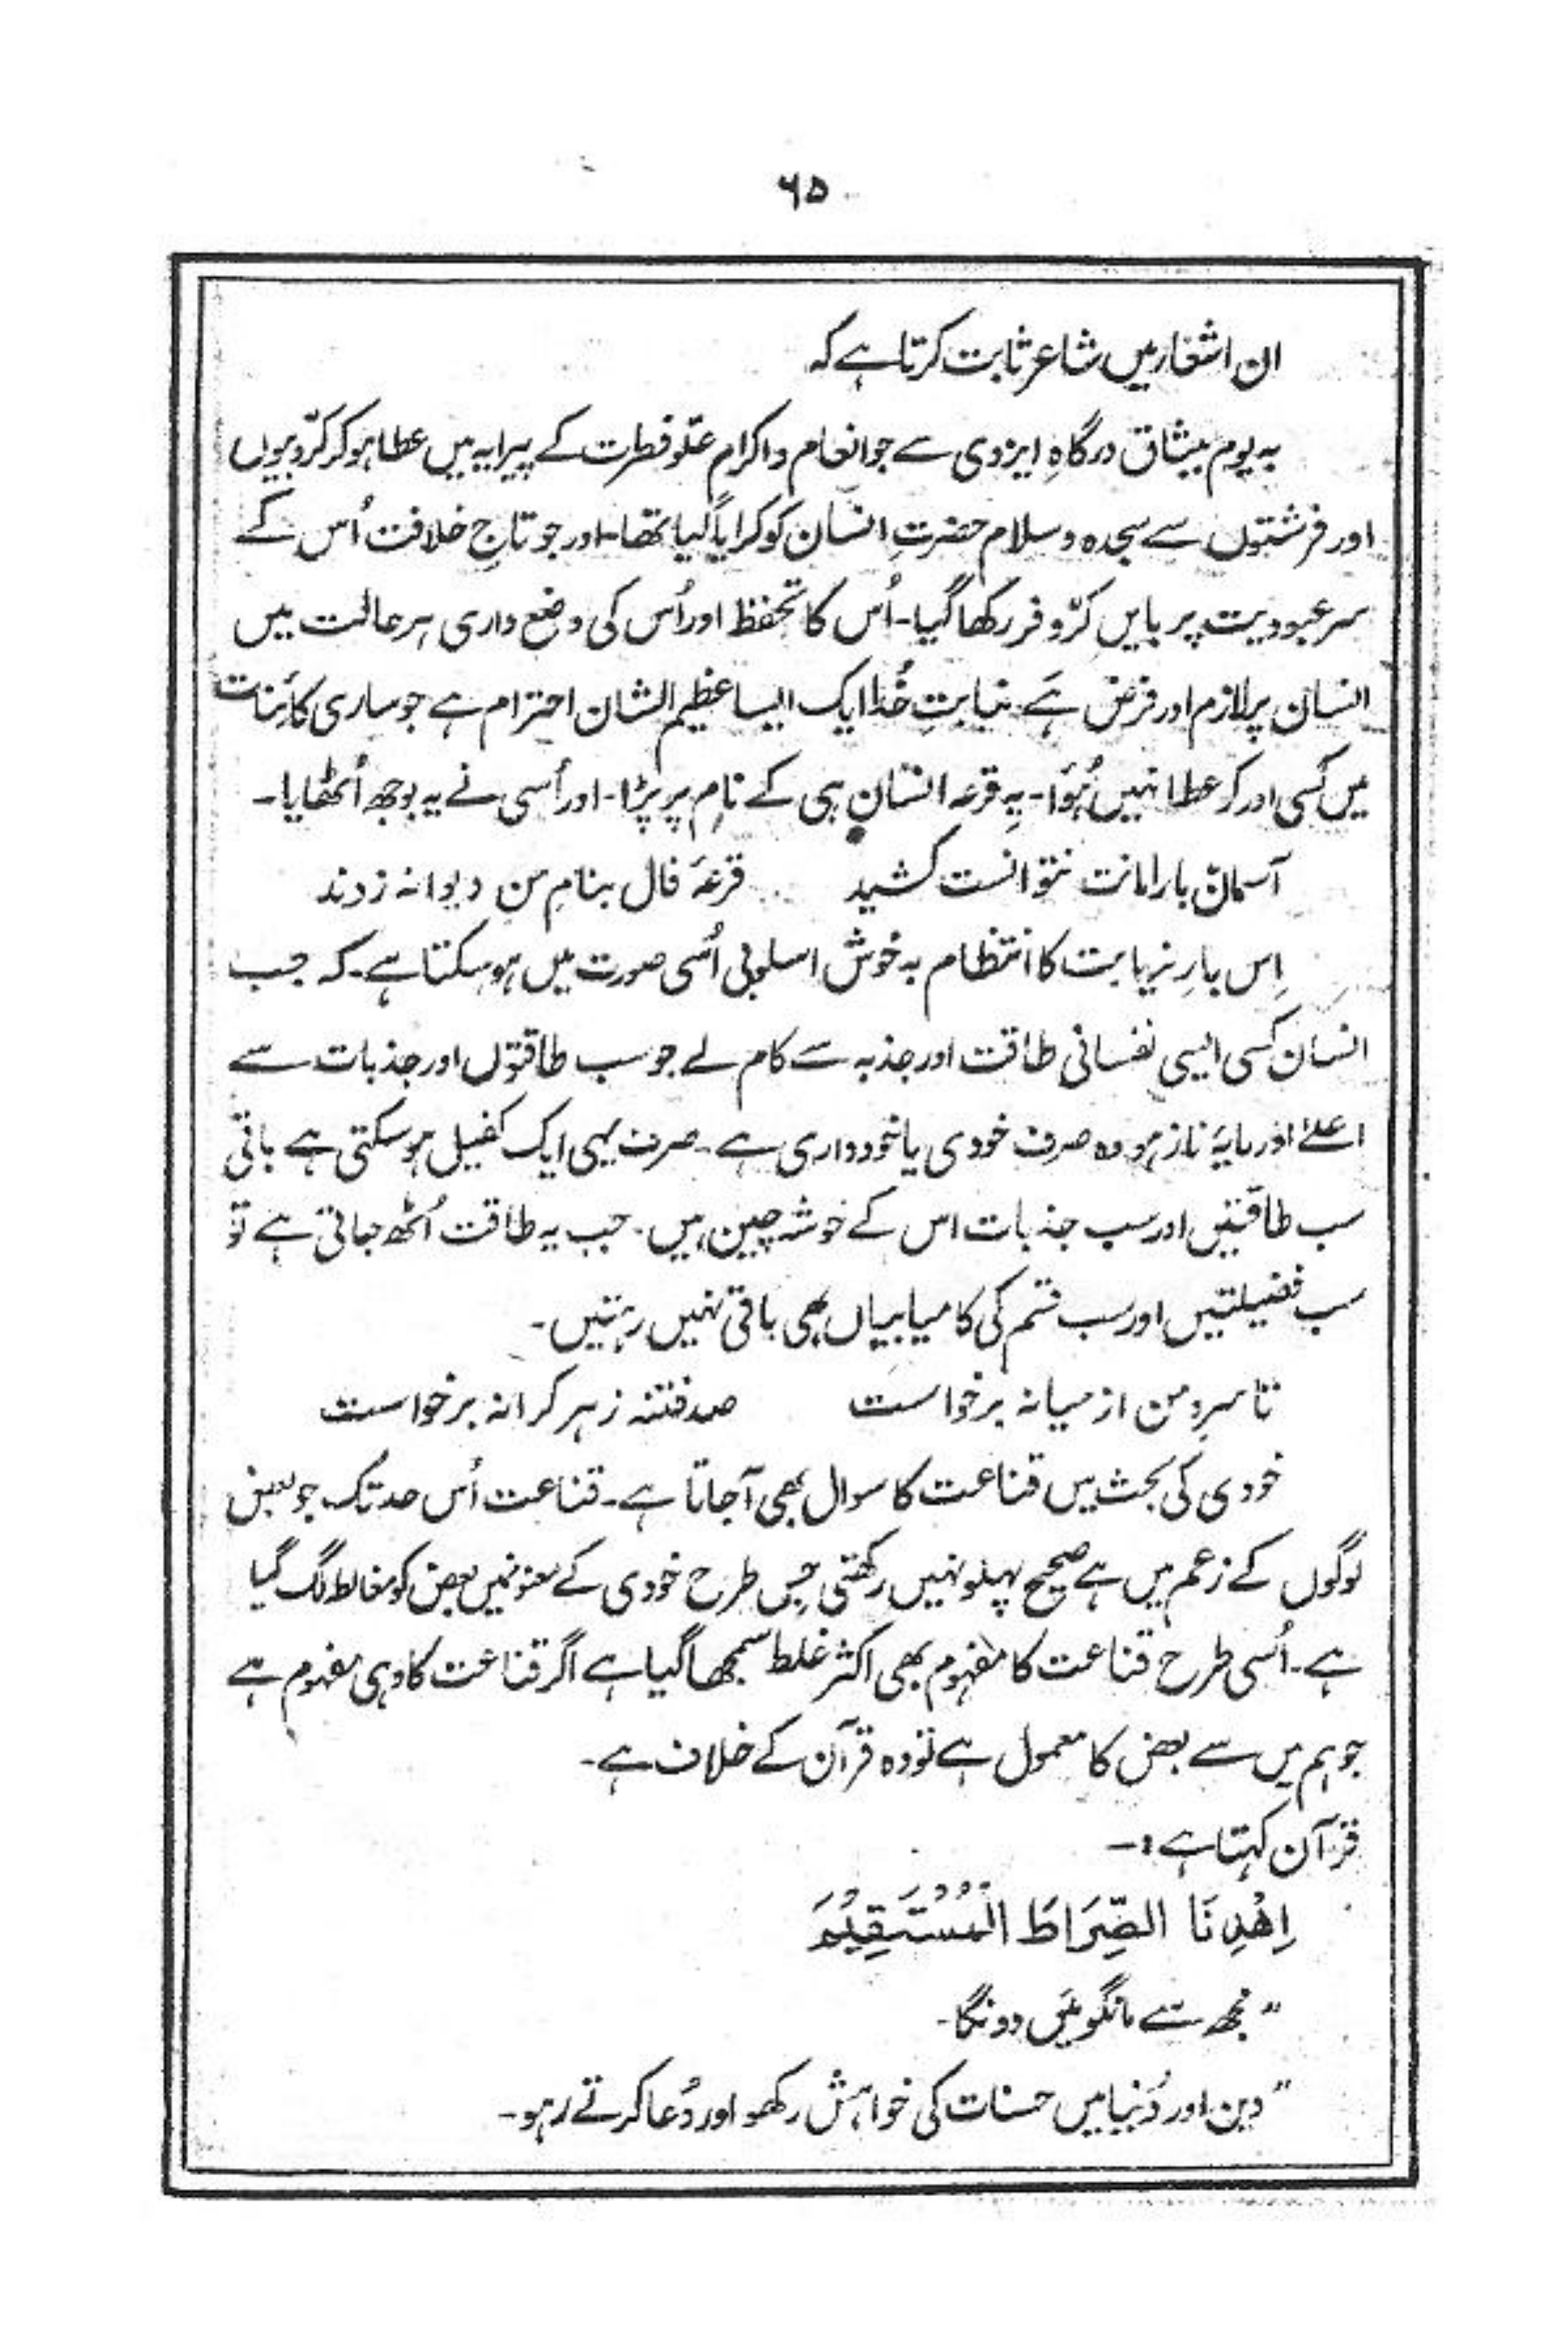 ۶۵
ان اشعار میں شاعر ثابت کرتا ہے کہ
بہ یوم میثاق درگاہِ ایزدی سے جو انعام و اکرام علوِّ فطرت کے پیرایہ میں عطا ہو کر کرّوبیوں
اور فرشتوں سے سجدہ و سلام حضرتِ انسان کو کرایا گیا تھا۔ اور جو تاجِ خلافت اُس کے
سرِ عبودیت پر بایں کرّوفر رکھا گیا۔ اُس کا تحفظ اور اُس کی وضع داری ہر حالت میں
انسان پر لازم اور فرض ہَے۔ نیابتِ خُدا ایک ایسا عظیم الشان احترام ہے جو ساری کائنات
میں کسی اور کو عطا نہیں ہُوَا۔ یہ قرعہ انسان ہی کے نام پر پڑا۔ اور اُسی نے یہ بوجھ اُٹھایا۔
آسماں بار امانت نتوانست کشید قرعۂ فال بنامِ من دیوانہ زدند
اِس بارِ نیابت کا انتظام بہ خوش اسلوبی اُسی صورت میں ہو سکتا ہے۔ کہ جب
انسان کسی ایسی نفسانی طاقت اور جذبہ سے کام لے جو سب طاقتوں اور جذبات سے
اعلےٰ اور مایۂ ناز ہو وہ صرف خودی یا خودداری ہے۔ صرف یہی ایک کفیل ہو سکتی ہے باقی
سب طاقتیں اور سب جذبات اس کے خوشہ چین ہیں۔ جب یہ طاقت اُٹھ جاتی ہے تو
سب فضیلتیں اور سب قسم کی کامیابیاں بھی باقی نہیں رہتیں۔
تا سروِ من از میانہ برخواست صد فتنہ ز ہر کرانہ برخواست
خودی کی بحث میں قناعت کا سوال بھی آ جاتا ہے۔ قناعت اُس حد تک جو بعض
لوگوں کے زعم میں ہے صحیح پہلو نہیں رکھتی جس طرح خودی کے معنوں میں بعض کو مغالطہ لگ گیا
ہے۔ اُسی طرح قناعت کا مفہوم بھی اکثر غلط سمجھا گیا ہے اگر قناعت کا وہی مفہوم ہے
جو ہم میں سے بعض کا معمول ہے تو وہ قرآن کے خلاف ہے۔
قرآن کہتا ہے :۔
اِھْدِنَا الصِّرَاطَ الْمُسْتَقِیْمَ
"مجھ سے مانگو میَں دونگا۔
"دین اور دُنیا میں حسنات کی خواہش رکھو اور دُعا کرتے رہو۔